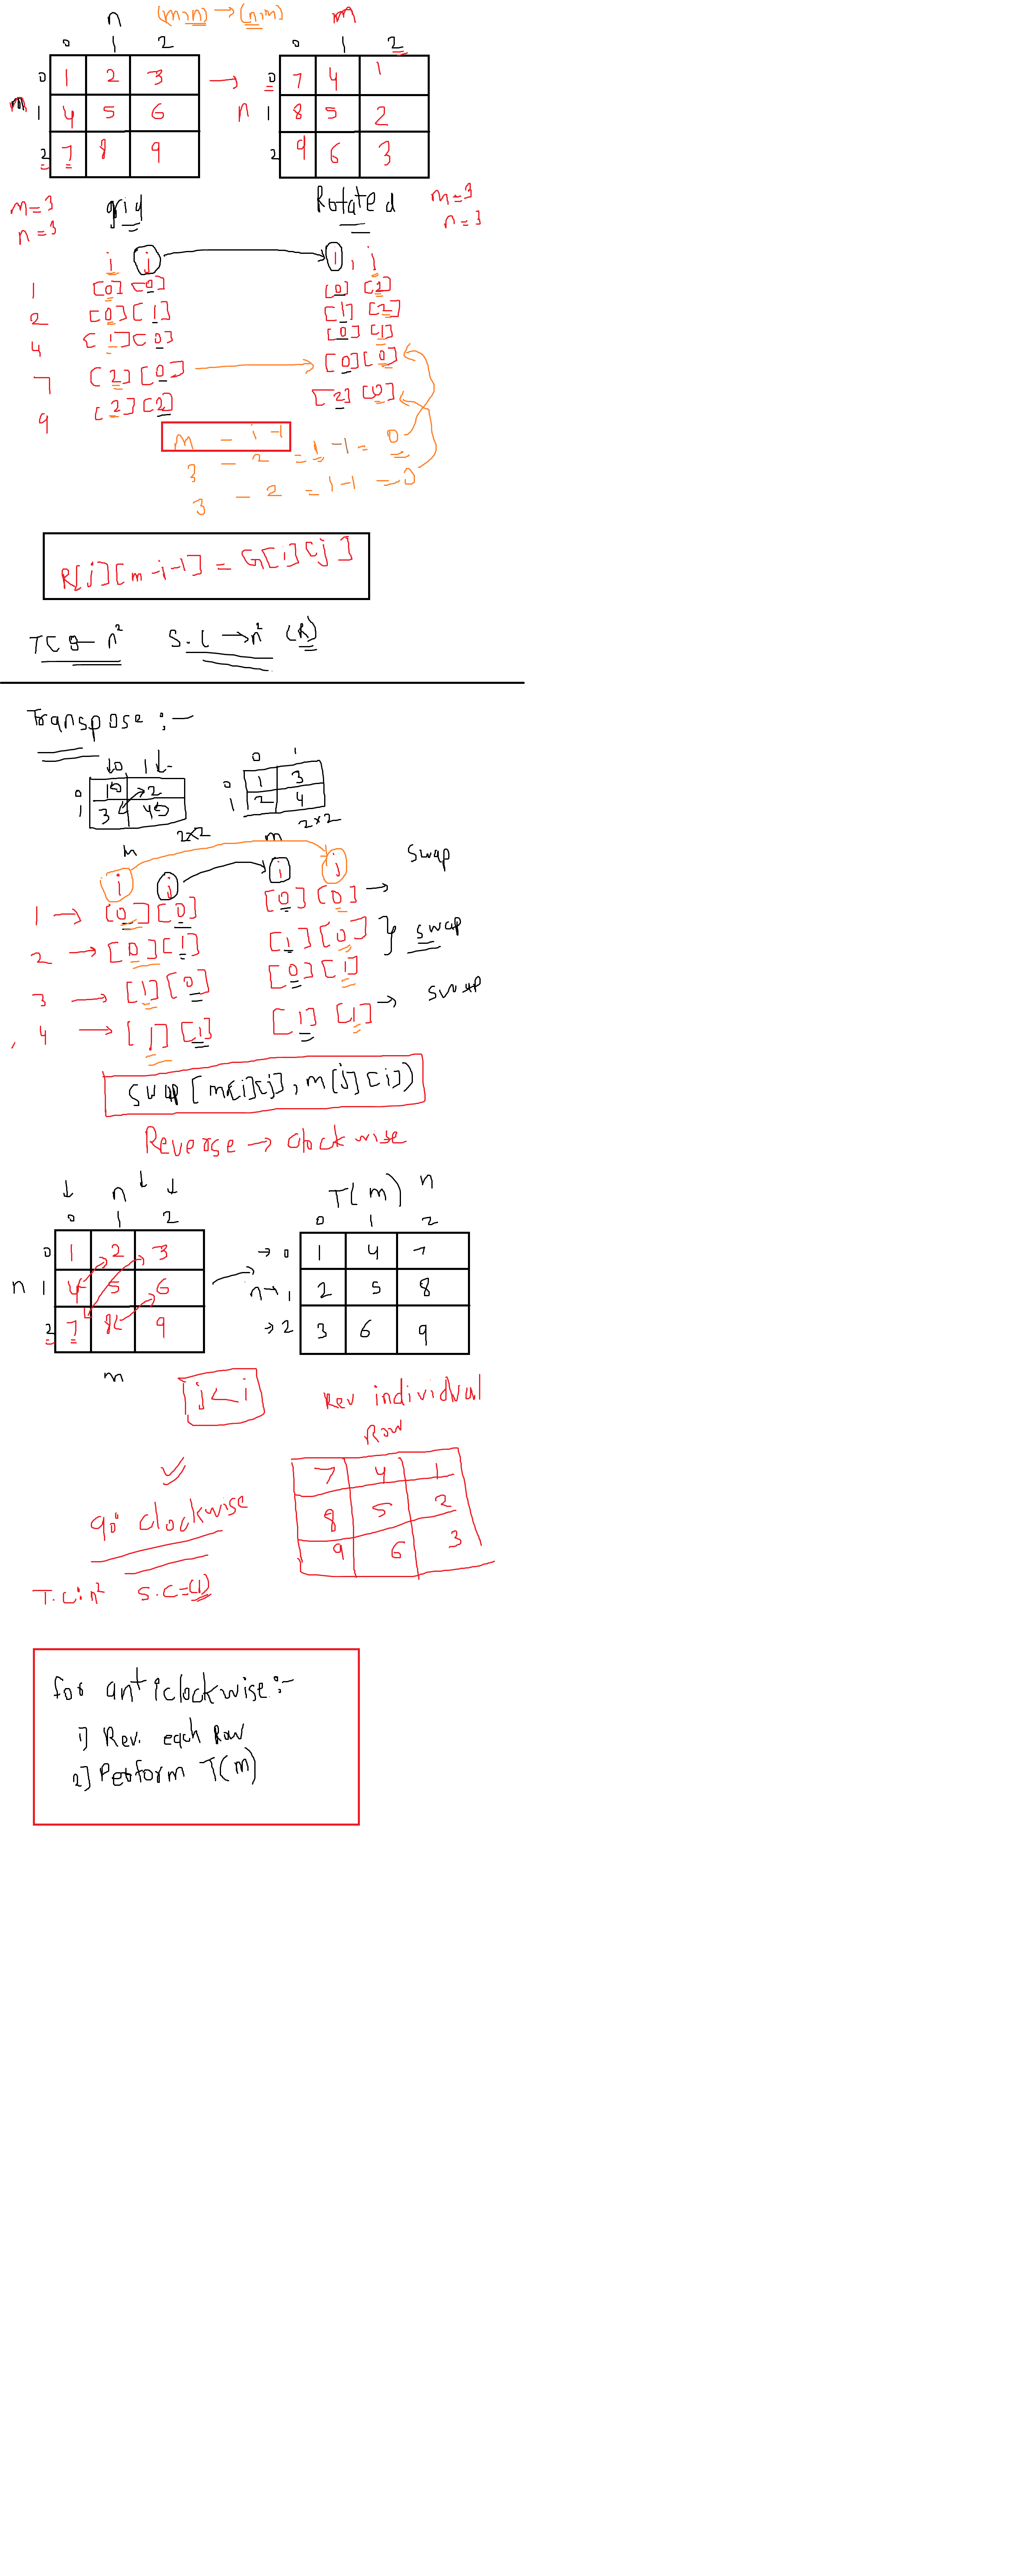 n (m,n) → (n,m) m
0 1 2 0 1 2
0 1 2 3 → 0 7 4 1
m 1 4 5 6 n 1 8 5 2
2 7 8 9 2 9 6 3
m=3 grid Rotated m=3
n=3 n=3
i j i, j
1 [0] [0] [0] [2]
2 [0] [1] [1] [2]
4 [1] [0] [0] [1]
7 [2] [0] [0] [0]
9 [2] [2] [2] [0]
m - i-1
3 - 2 = 1 -1 = 0
3 - 2 = 1-1 = 0
R[j][m-i-1] = G[i][j]
TC → n² S.C → n² (R)
Transpose :-
↓0 1↓ 0 1
0 1 2 0 1 3
1 3 4 1 2 4
m 2×2 m 2×2
i j i j swap
1 → [0] [0] [0] [0] →
2 → [0] [1] [1] [0] } swap
3 → [1] [0] [0] [1]
4 → [1] [1] [1] [1] → swap
swap [m[i][j], m[j][i])
Reverse → clockwise
↓ n ↓ ↓ T(m) n
0 1 2 0 1 2
0 1 2 3 → 0 1 4 7
n 1 4 5 6 n → 1 2 5 8
2 7 8 9 → 2 3 6 9
m
j < i Rev individual
Row
7 4 1
90° clockwise 8 5 2
9 6 3
T.C : n² S.C = (1)
for anticlockwise :-
1] Rev. each Row
2] Perform T(m)